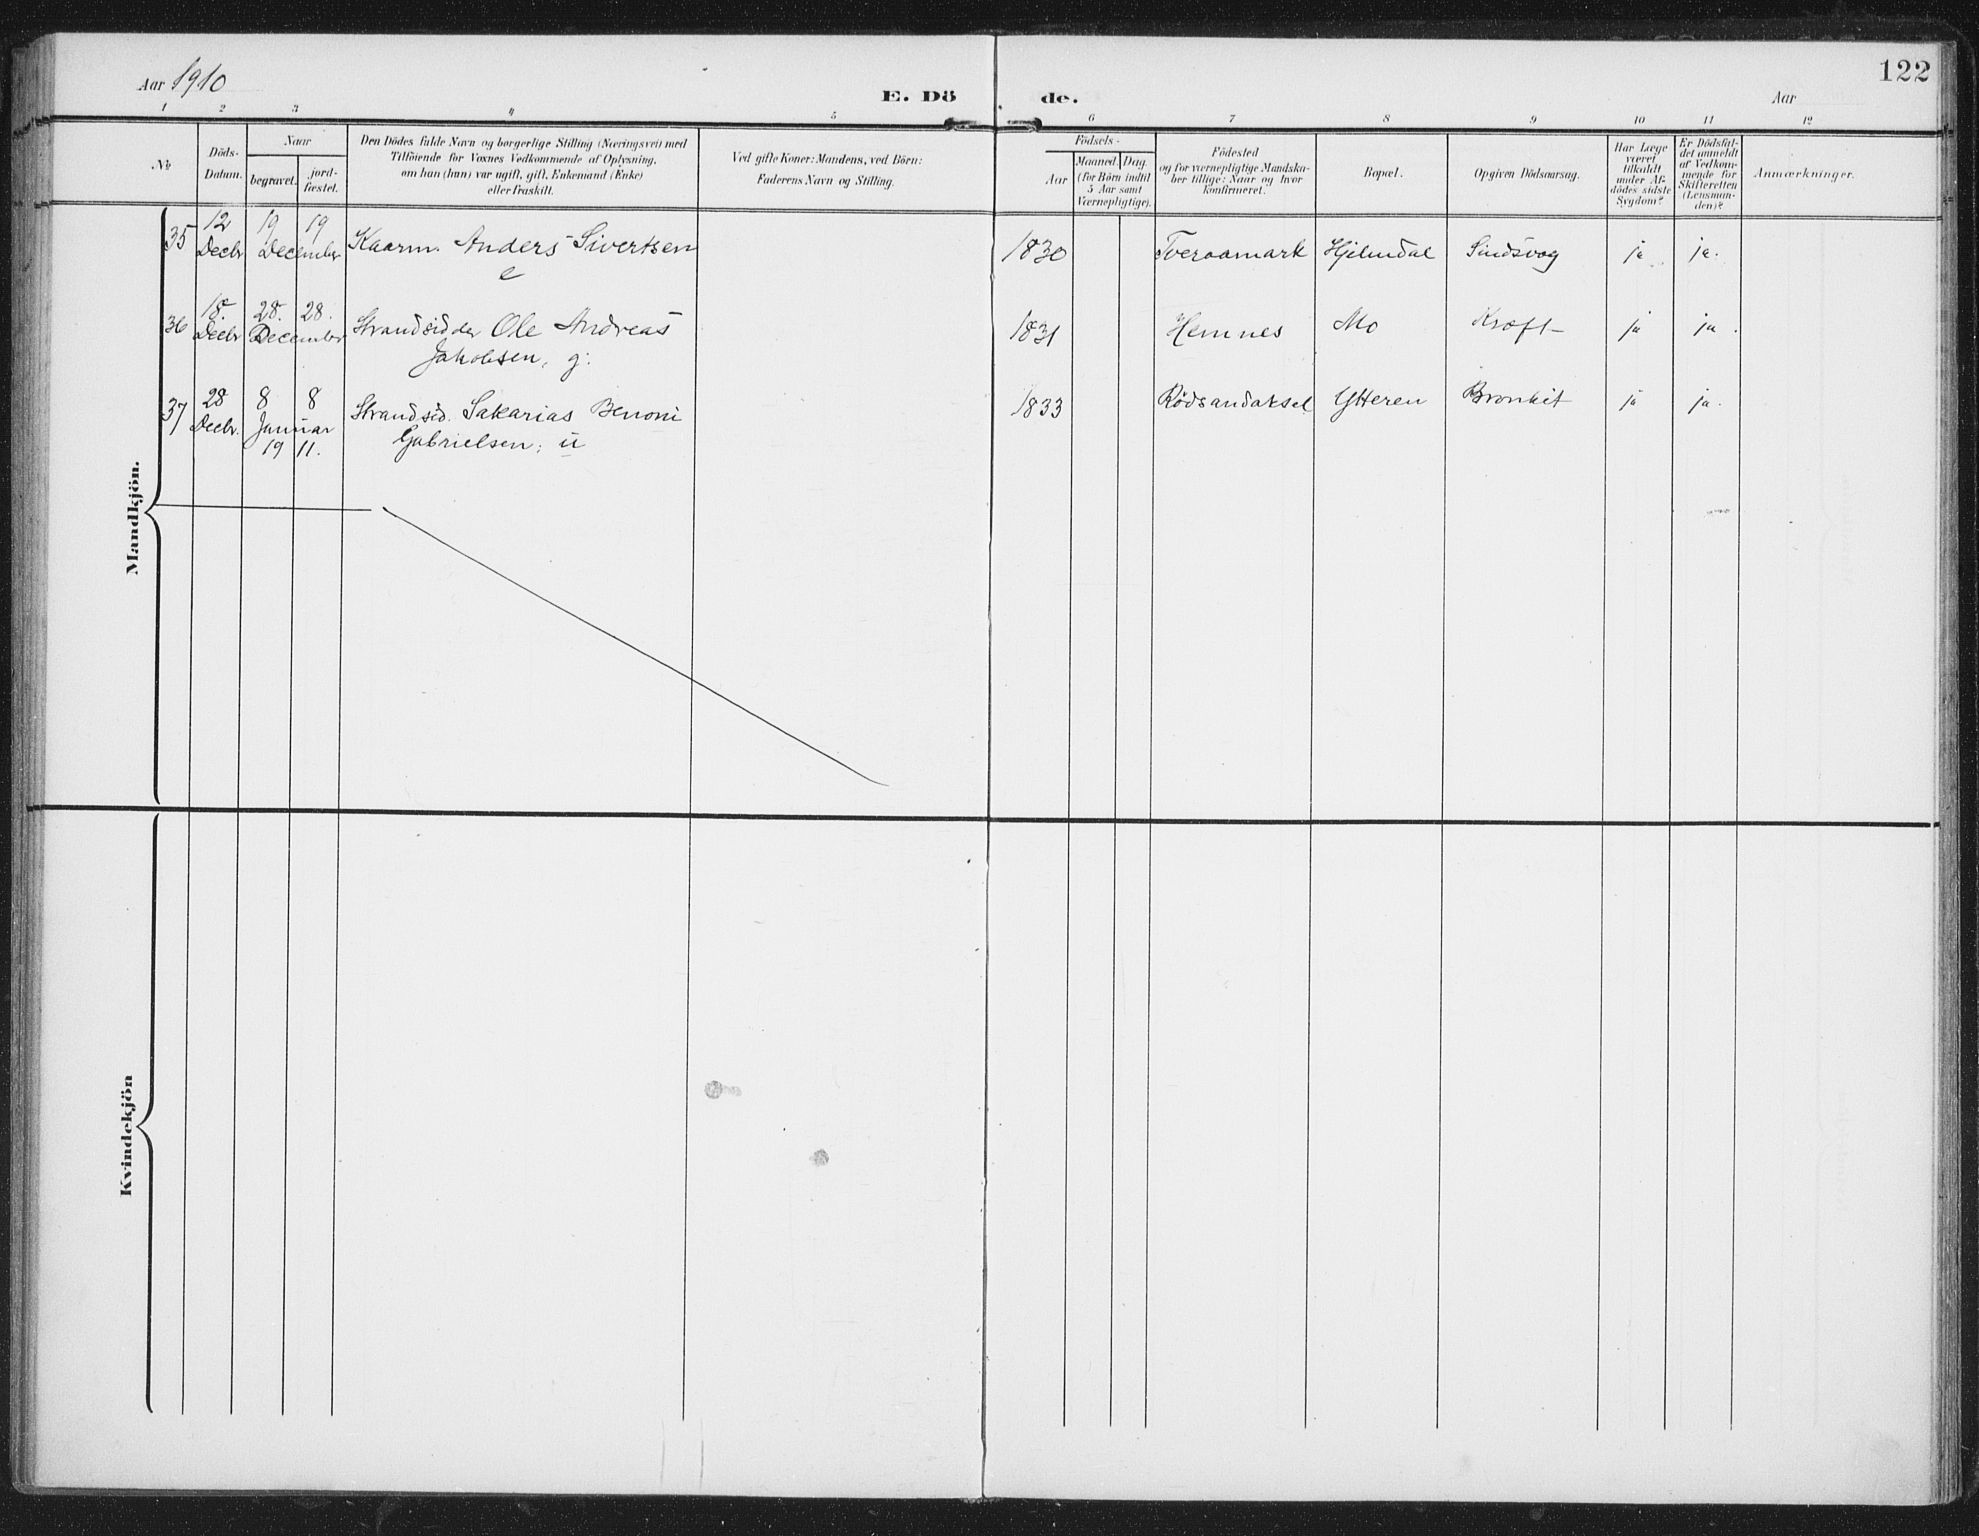 122
Aar 1910
E. Dö de.
Aar
1 2 3 4 5 6 7 8 9 10 11 12
№
Döds-
Datum.
Naar
begravet.
jord-
fæstet.
Den Dödes fulde Navn og borgerlige Stilling (Næringsvei) med
Tilföiende for Voxnes Vedkommende af Oplysning,
om han (hun) var ugift, gift, Enkemand (Enke)
eller fraskilt.
Ved gifte Koner: Mandens, ved Börn:
Faderens Navn og Stilling.
Födsels-
Aar
Maaned. Dag.
(for Börn indtil
5 Aar samt
Værnepligtige).
Födested
og for værnepligtige Mandska-
ber tillige: Naar og hvor
konfirmeret.
Bopæl.
Opgiven Dödsaarsag.
Har Læge
været
tilkaldt
under Af-
dödes sidste
Sygdom?
Er Dödsfal-
det anmeldt
af Vedkom-
mende for
Skifteretten
(Lensman-
den)?
Anmærkninger.
Mandkjön.
35 12 Decbr. 19 19 December Kaarm. Anders Sivertsen e 1830 Tveraamark Hjelmdal Sindsvag ja ja.
36 18. Decbr 28. 28. December Strandsidder Ole Andreas Jakobsen, g. 1831 Hemnes Mo Kræft ja ja.
37 28 Decbr. 8 8 Januar 19 11. Strandsid. Sakarias Benoni Gabrielsen; u 1833 Rödsandaksel Ytteren Bronkit ja ja.
Kvindekjön